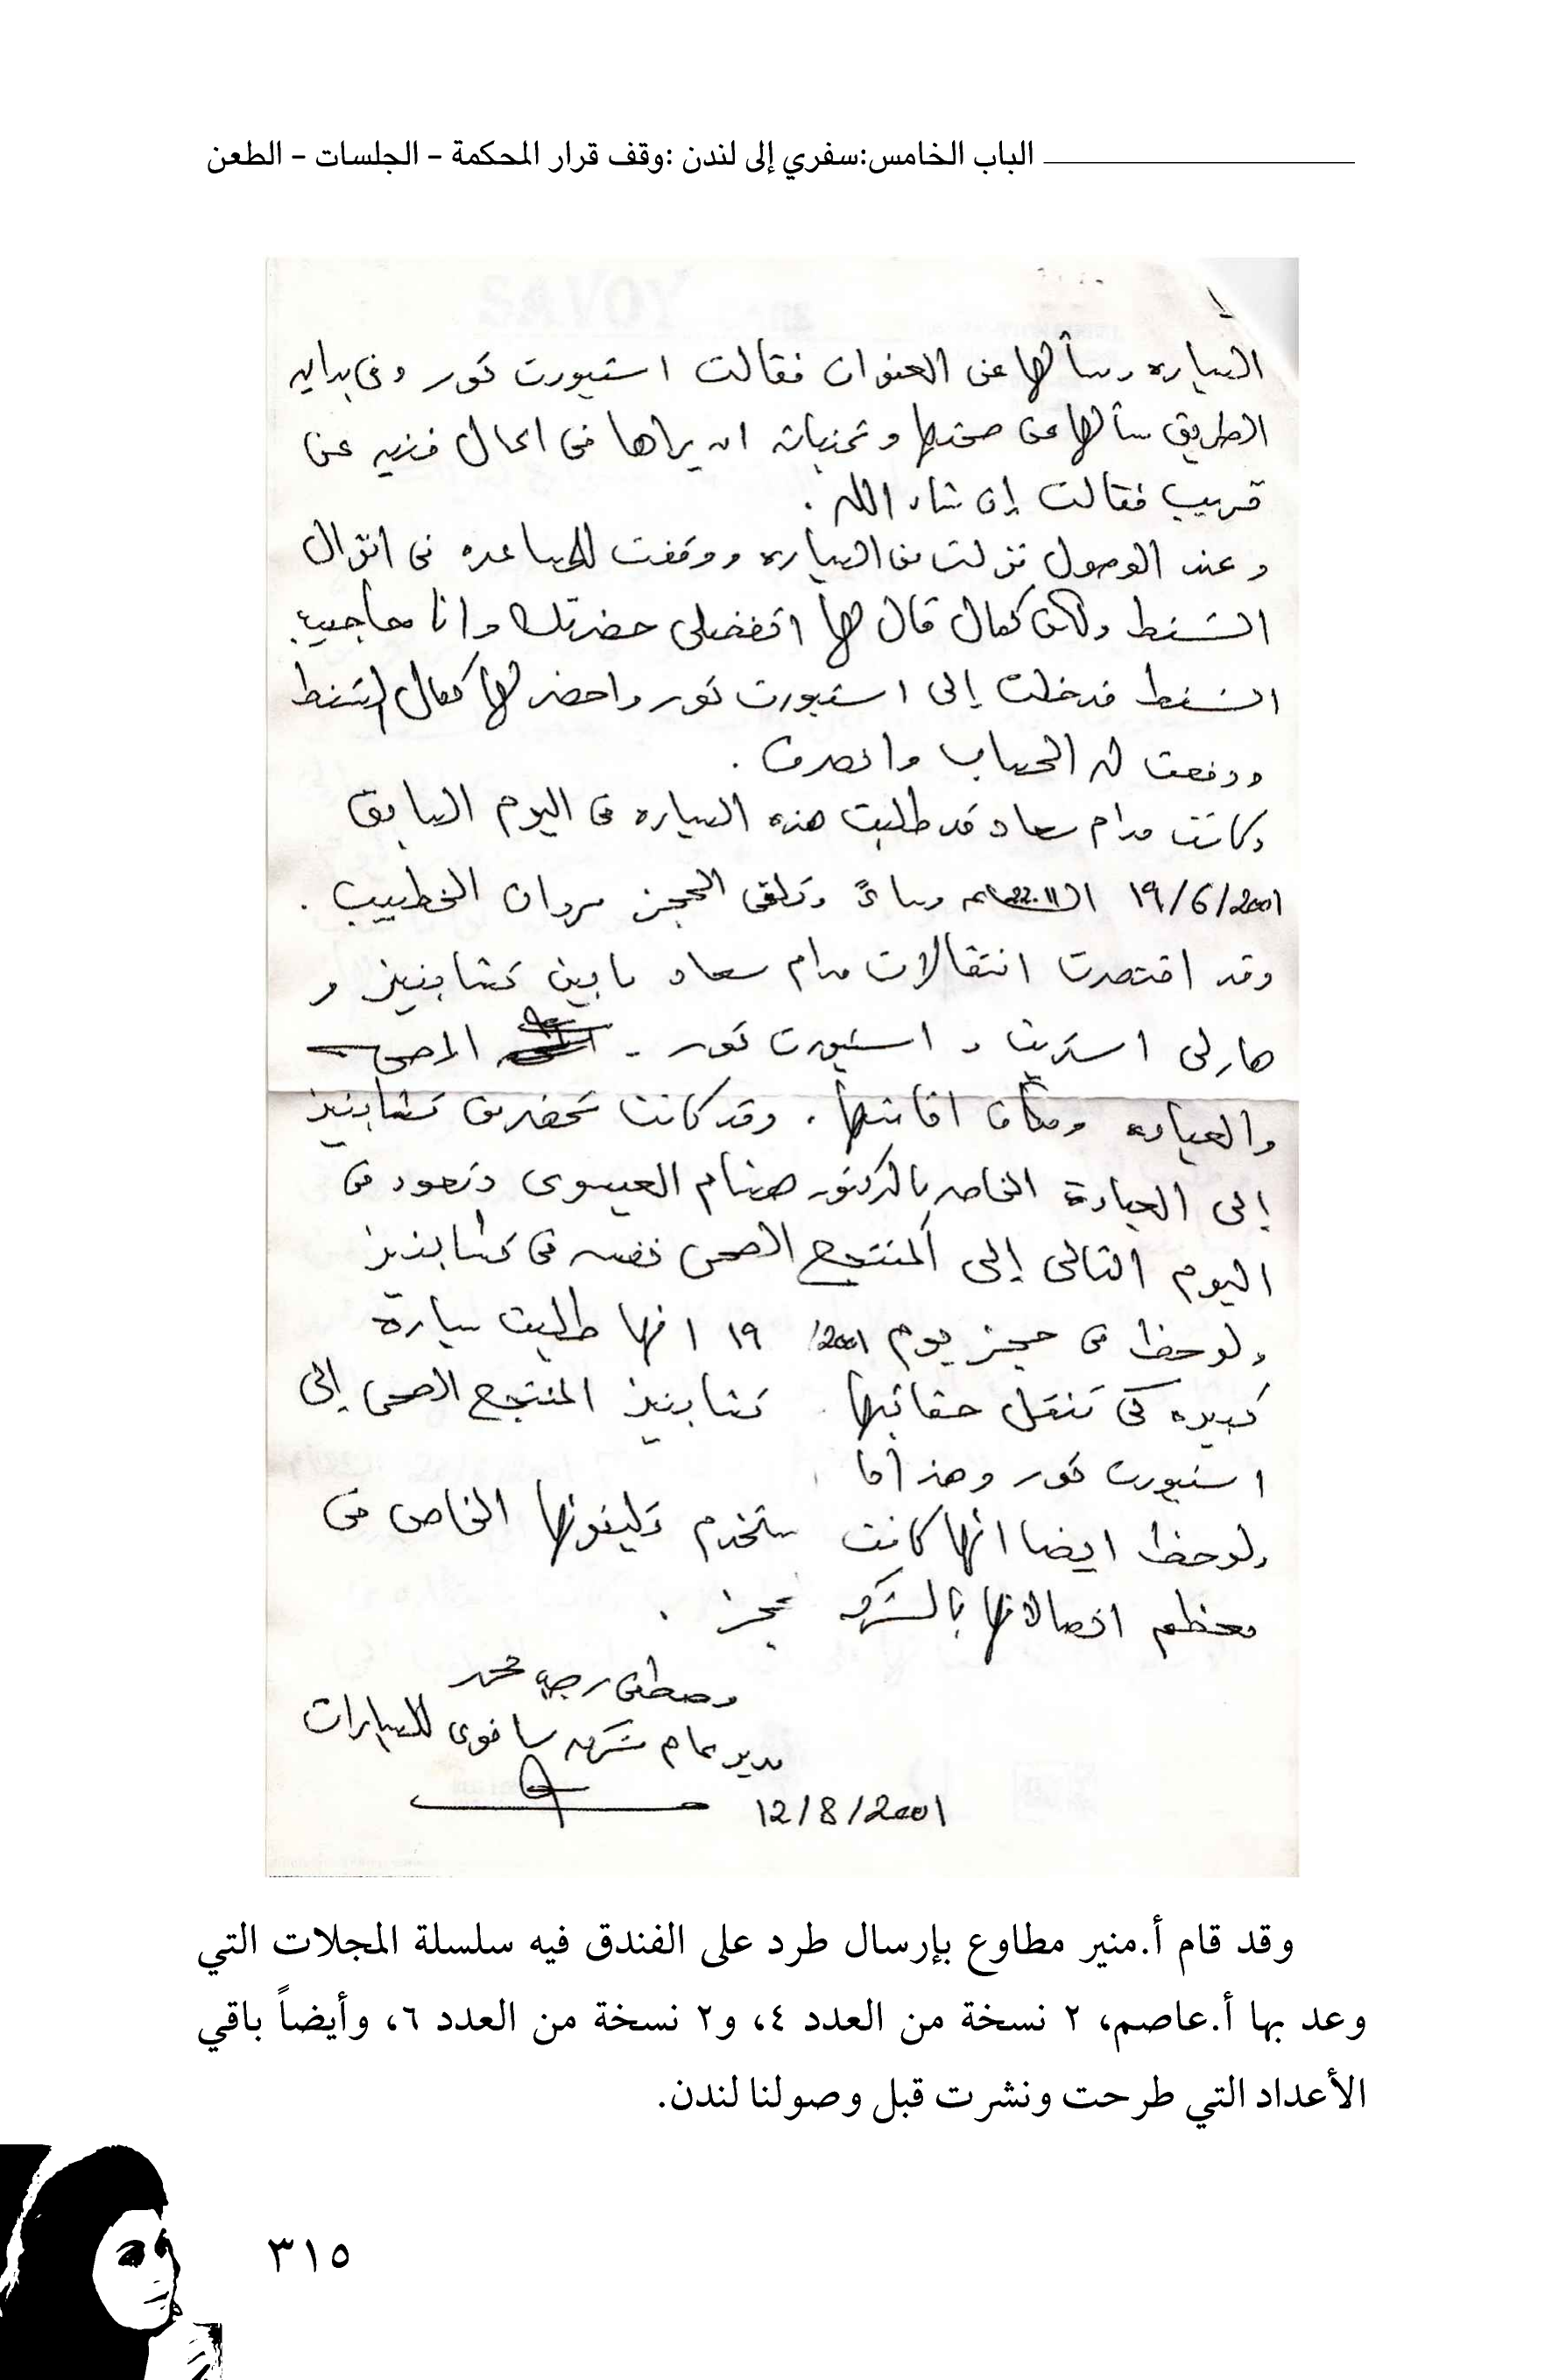 الباب الخامس:سفري إلى لندن :وقف قرار المحكمة – الجلسات – الطعن
السياره وسألها عن العنوان فقالت استيورت تور وفى بدايه
الطريق سألها عن صحتها وتمنياته ان يراها فى اعمال فنيه عن
قريب فقالت إن شاء الله .
وعند الوصول نزلت من السياره ووقفت للمساعده فى انزال
الشنط ولكن كمال قال لها اتفضلى حضرتك وانا هاجيب
الشنط فدخلت إلى استيورت تور واحضر لها كمال الشنط
ودفعت له الحساب وانصرف .
وكانت مدام سعاد قد طلبت هذه السياره فى اليوم السابق
١٩/6/2001 مساءً وتلقى الحجز مروان الخطيب .
وقد اقتصرت انتقالات مدام سعاد ما بين تشابنيز و
هارلى استريت و استيورت تور - المصحى
والعياده ومكان اقامتها . وقد كانت تحضر من تشابنيز
إلى العيادة الخاصه بالدكتور هشام العيسوى وتعود فى
اليوم التالى إلى المنتجع الصحى نفسه فى تشابنيز
ولوحظ فى حجز يوم ١٩ /2001 انها طلبت سيارة
كبيره كى تنقل حقائبها تشابنيز المنتجع الصحى إلى
استيورت تور وهذا ما
ولوحظ ايضا انها كانت ستخدم تليفونها الخاص فى
معظم اتصالاتها بالشركه حجز .
مصطفى رجب محمد
مدير عام شركه سافوى للسيارات
12/8/2001
وقد قام أ.منير مطاوع بإرسال طرد على الفندق فيه سلسلة المجلات التي
وعد بها أ.عاصم، ٢ نسخة من العدد ٤، و٢ نسخة من العدد ٦، وأيضاً باقي
الأعداد التي طرحت ونشرت قبل وصولنا لندن.
٣١٥